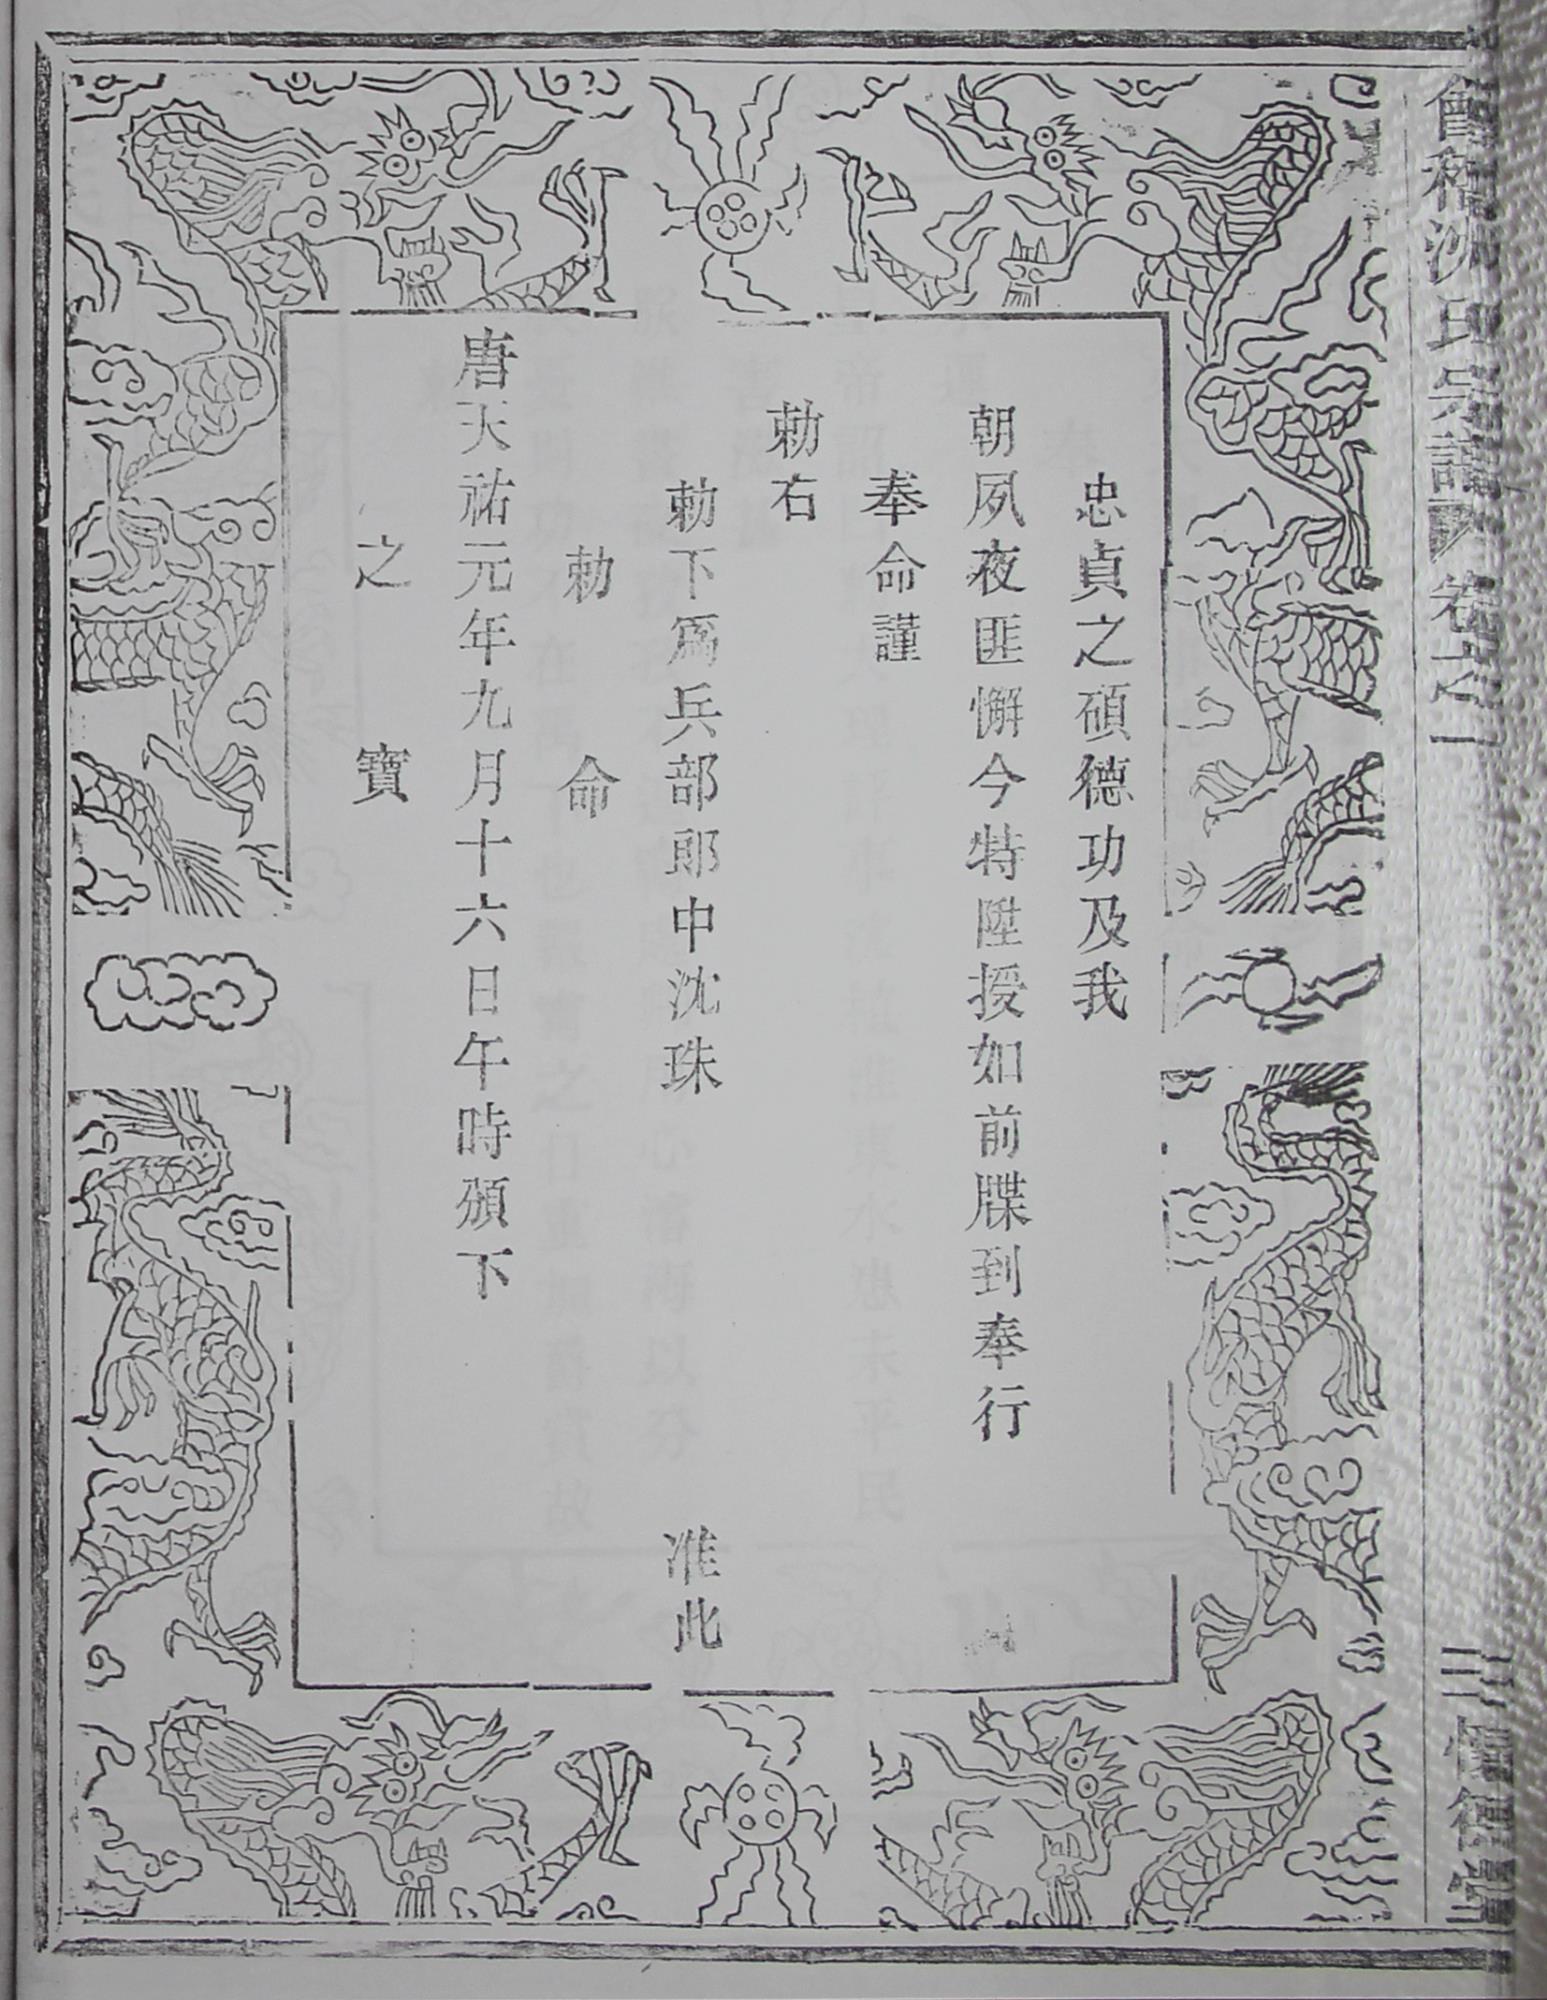 忠貞之碩德功及我
朝夙夜匪懈今特陞授如前牒到奉行
奉命謹
勅右
勅下爲兵部郎中沈珠 准此
勅命
唐天祐元年九月十六日午時頒下
之寶
會稽沈氏宗譜 卷之一
三